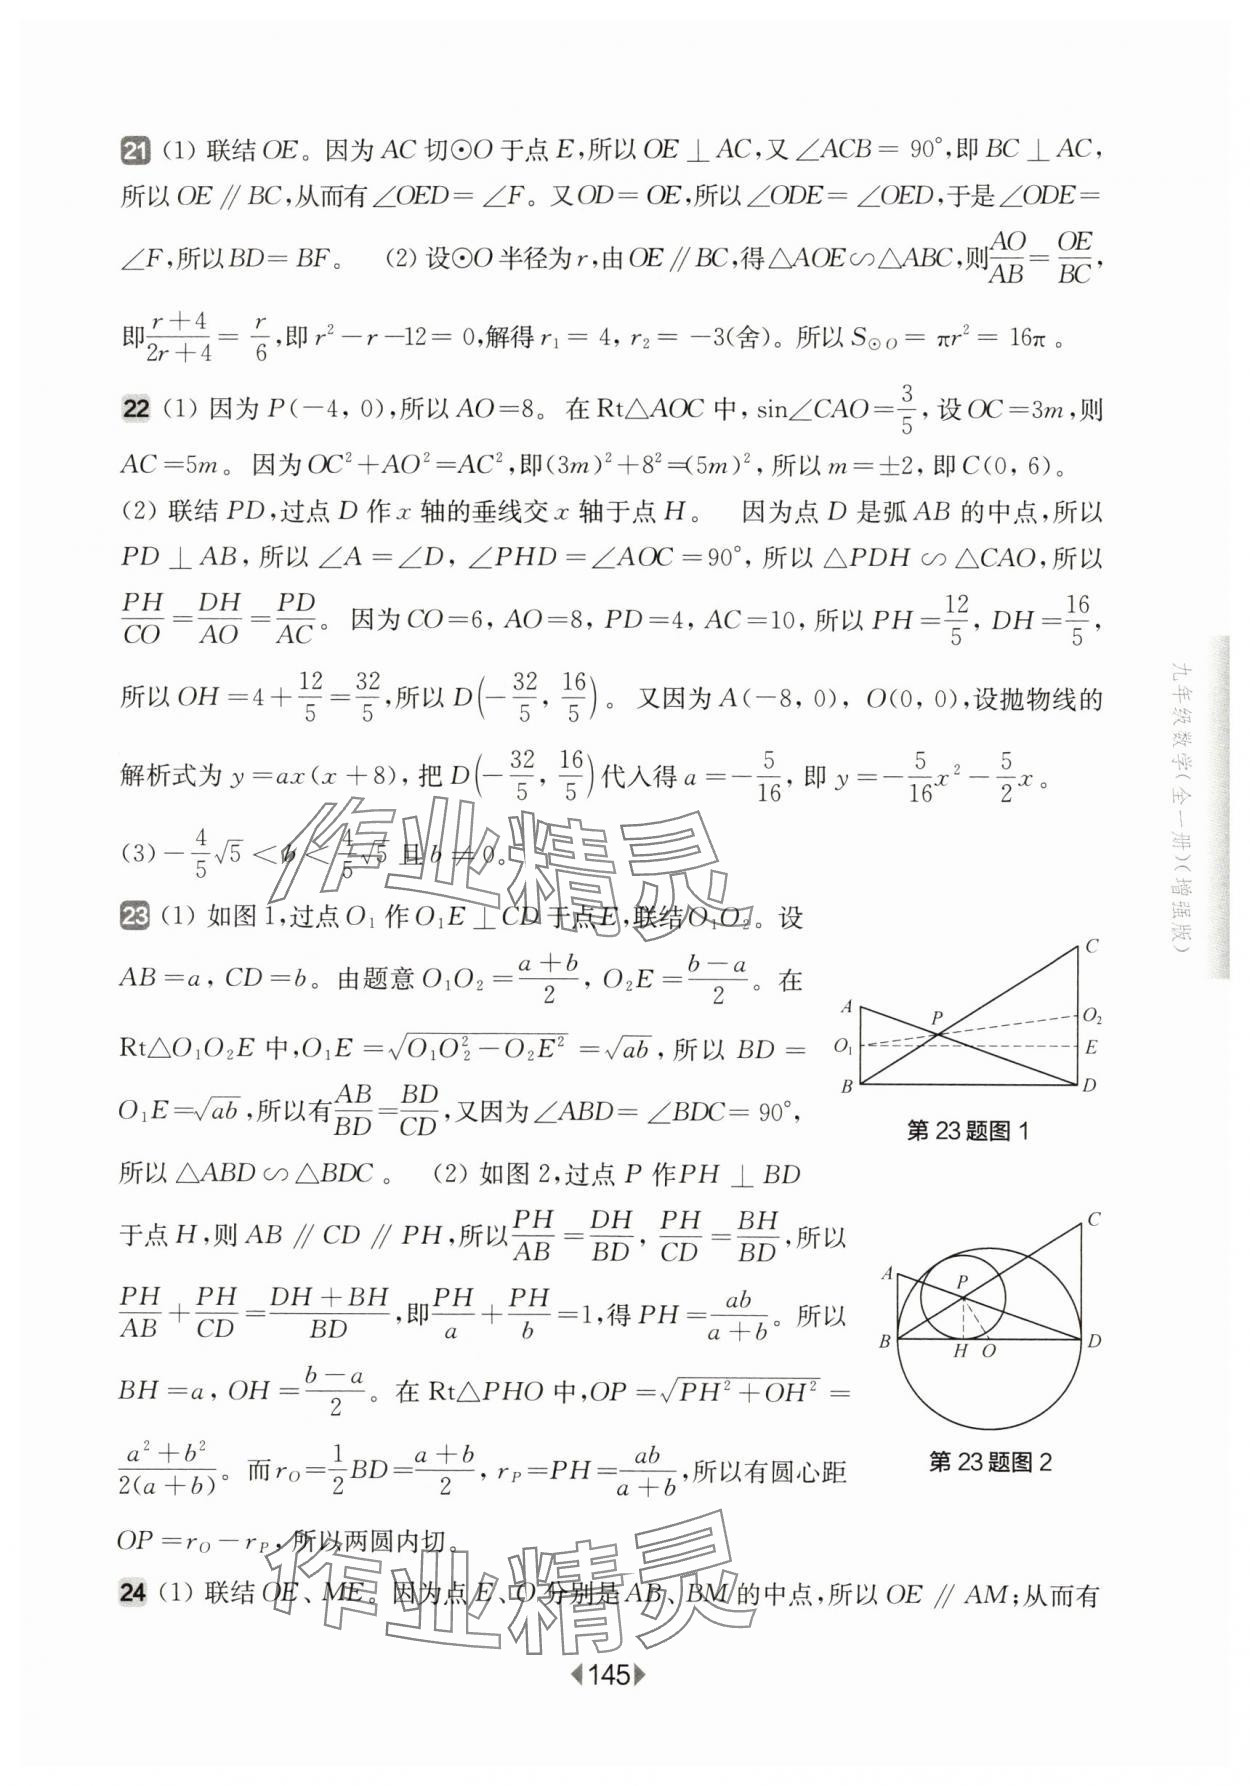 21 (1) 联结OE。因为AC切⊙O于点E,所以OE⊥AC,又∠ACB=90°,即BC⊥AC,
所以OE∥BC,从而有∠OED=∠F。又OD=OE,所以∠ODE=∠OED,于是∠ODE=
∠F,所以BD=BF。 (2) 设⊙O半径为r,由OE∥BC,得△AOE∽△ABC,则AO/AB=OE/BC,
即(r+4)/(2r+4)=r/6,即r²-r-12=0,解得r₁=4, r₂=-3(舍)。所以S⊙O=πr²=16π。
22 (1) 因为P(-4, 0),所以AO=8。在Rt△AOC中, sin∠CAO=3/5, 设OC=3m,则
AC=5m。因为OC²+AO²=AC²,即(3m)²+8²=(5m)², 所以m=±2, 即C(0, 6)。
(2) 联结PD,过点D作x轴的垂线交x轴于点H。 因为点D是弧AB的中点,所以
PD⊥AB, 所以∠A=∠D, ∠PHD=∠AOC=90°, 所以△PDH∽△CAO,所以
PH/CO=DH/AO=PD/AC。因为CO=6, AO=8, PD=4, AC=10, 所以PH=12/5, DH=16/5,
所以OH=4+12/5=32/5,所以D(-32/5, 16/5)。又因为A(-8, 0), O(0, 0),设抛物线的
解析式为y=ax(x+8), 把D(-32/5, 16/5)代入得a=-5/16, 即y=-5/16x²-5/2x。
(3) -4/5√5<b<4/5√5且b≠0。
23 (1) 如图1,过点O₁作O₁E⊥CD于点E,联结O₁O₂。设
AB=a, CD=b。由题意O₁O₂=(a+b)/2, O₂E=(b-a)/2。在
Rt△O₁O₂E中,O₁E=√(O₁O₂²-O₂E²)=√(ab), 所以BD=
O₁E=√(ab),所以有AB/BD=BD/CD,又因为∠ABD=∠BDC=90°,
所以△ABD∽△BDC。 (2) 如图2,过点P作PH⊥BD
于点H,则AB∥CD∥PH,所以PH/AB=DH/BD, PH/CD=BH/BD,所以
PH/AB+PH/CD=(DH+BH)/BD,即PH/a+PH/b=1,得PH=ab/(a+b)。所以
BH=a, OH=(b-a)/2。在Rt△PHO中,OP=√(PH²+OH²)=
(a²+b²)/(2(a+b))。而r_O=1/2BD=(a+b)/2, r_P=PH=ab/(a+b),所以有圆心距
OP=r_O-r_P, 所以两圆内切。
24 (1) 联结OE、ME。因为点E、O分别是AB、BM的中点,所以OE∥AM;从而有
A
B
C
D
P
O₁
O₂
E
第23题图1
A
B
C
D
P
H
O
第23题图2
九年级数学(全一册)(增强版)
145
作业精灵
作业精灵